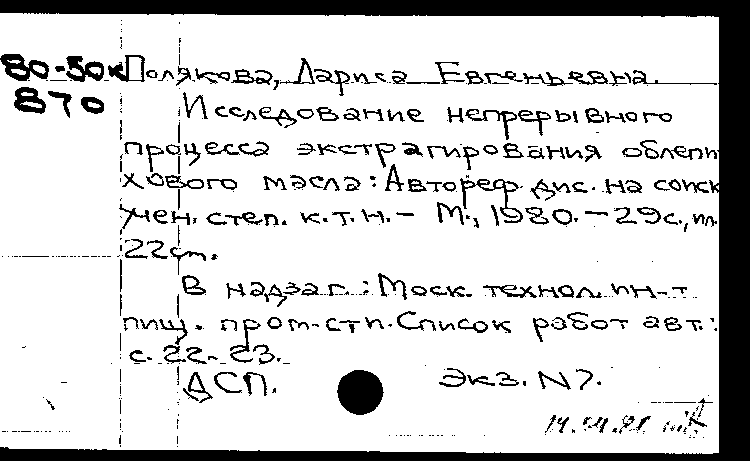 80-50к Полякова, Лариса Евгеньевна.
870 Исследование непрерывного
процесса экстрагирования облепи
хового масла: Автореф. дис. на соиск
учен. степ. к.т.н. - М., 1980. - 29с., ил.
22см.
В надзаг.: Моск. технол. ин-т
пищ. пром-сти. Список работ авт.:
с. 22-23.
ДСП. Экз. N7.